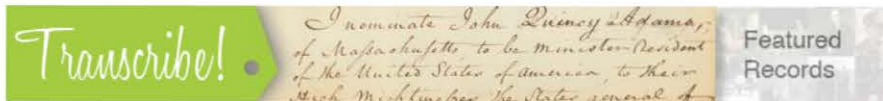 Transcribe!
I nominate John Quincy Adams,
of Massachusetts to be minister Resident
of the United States of america, to their
High Mightinesses the States general of
Featured
Records